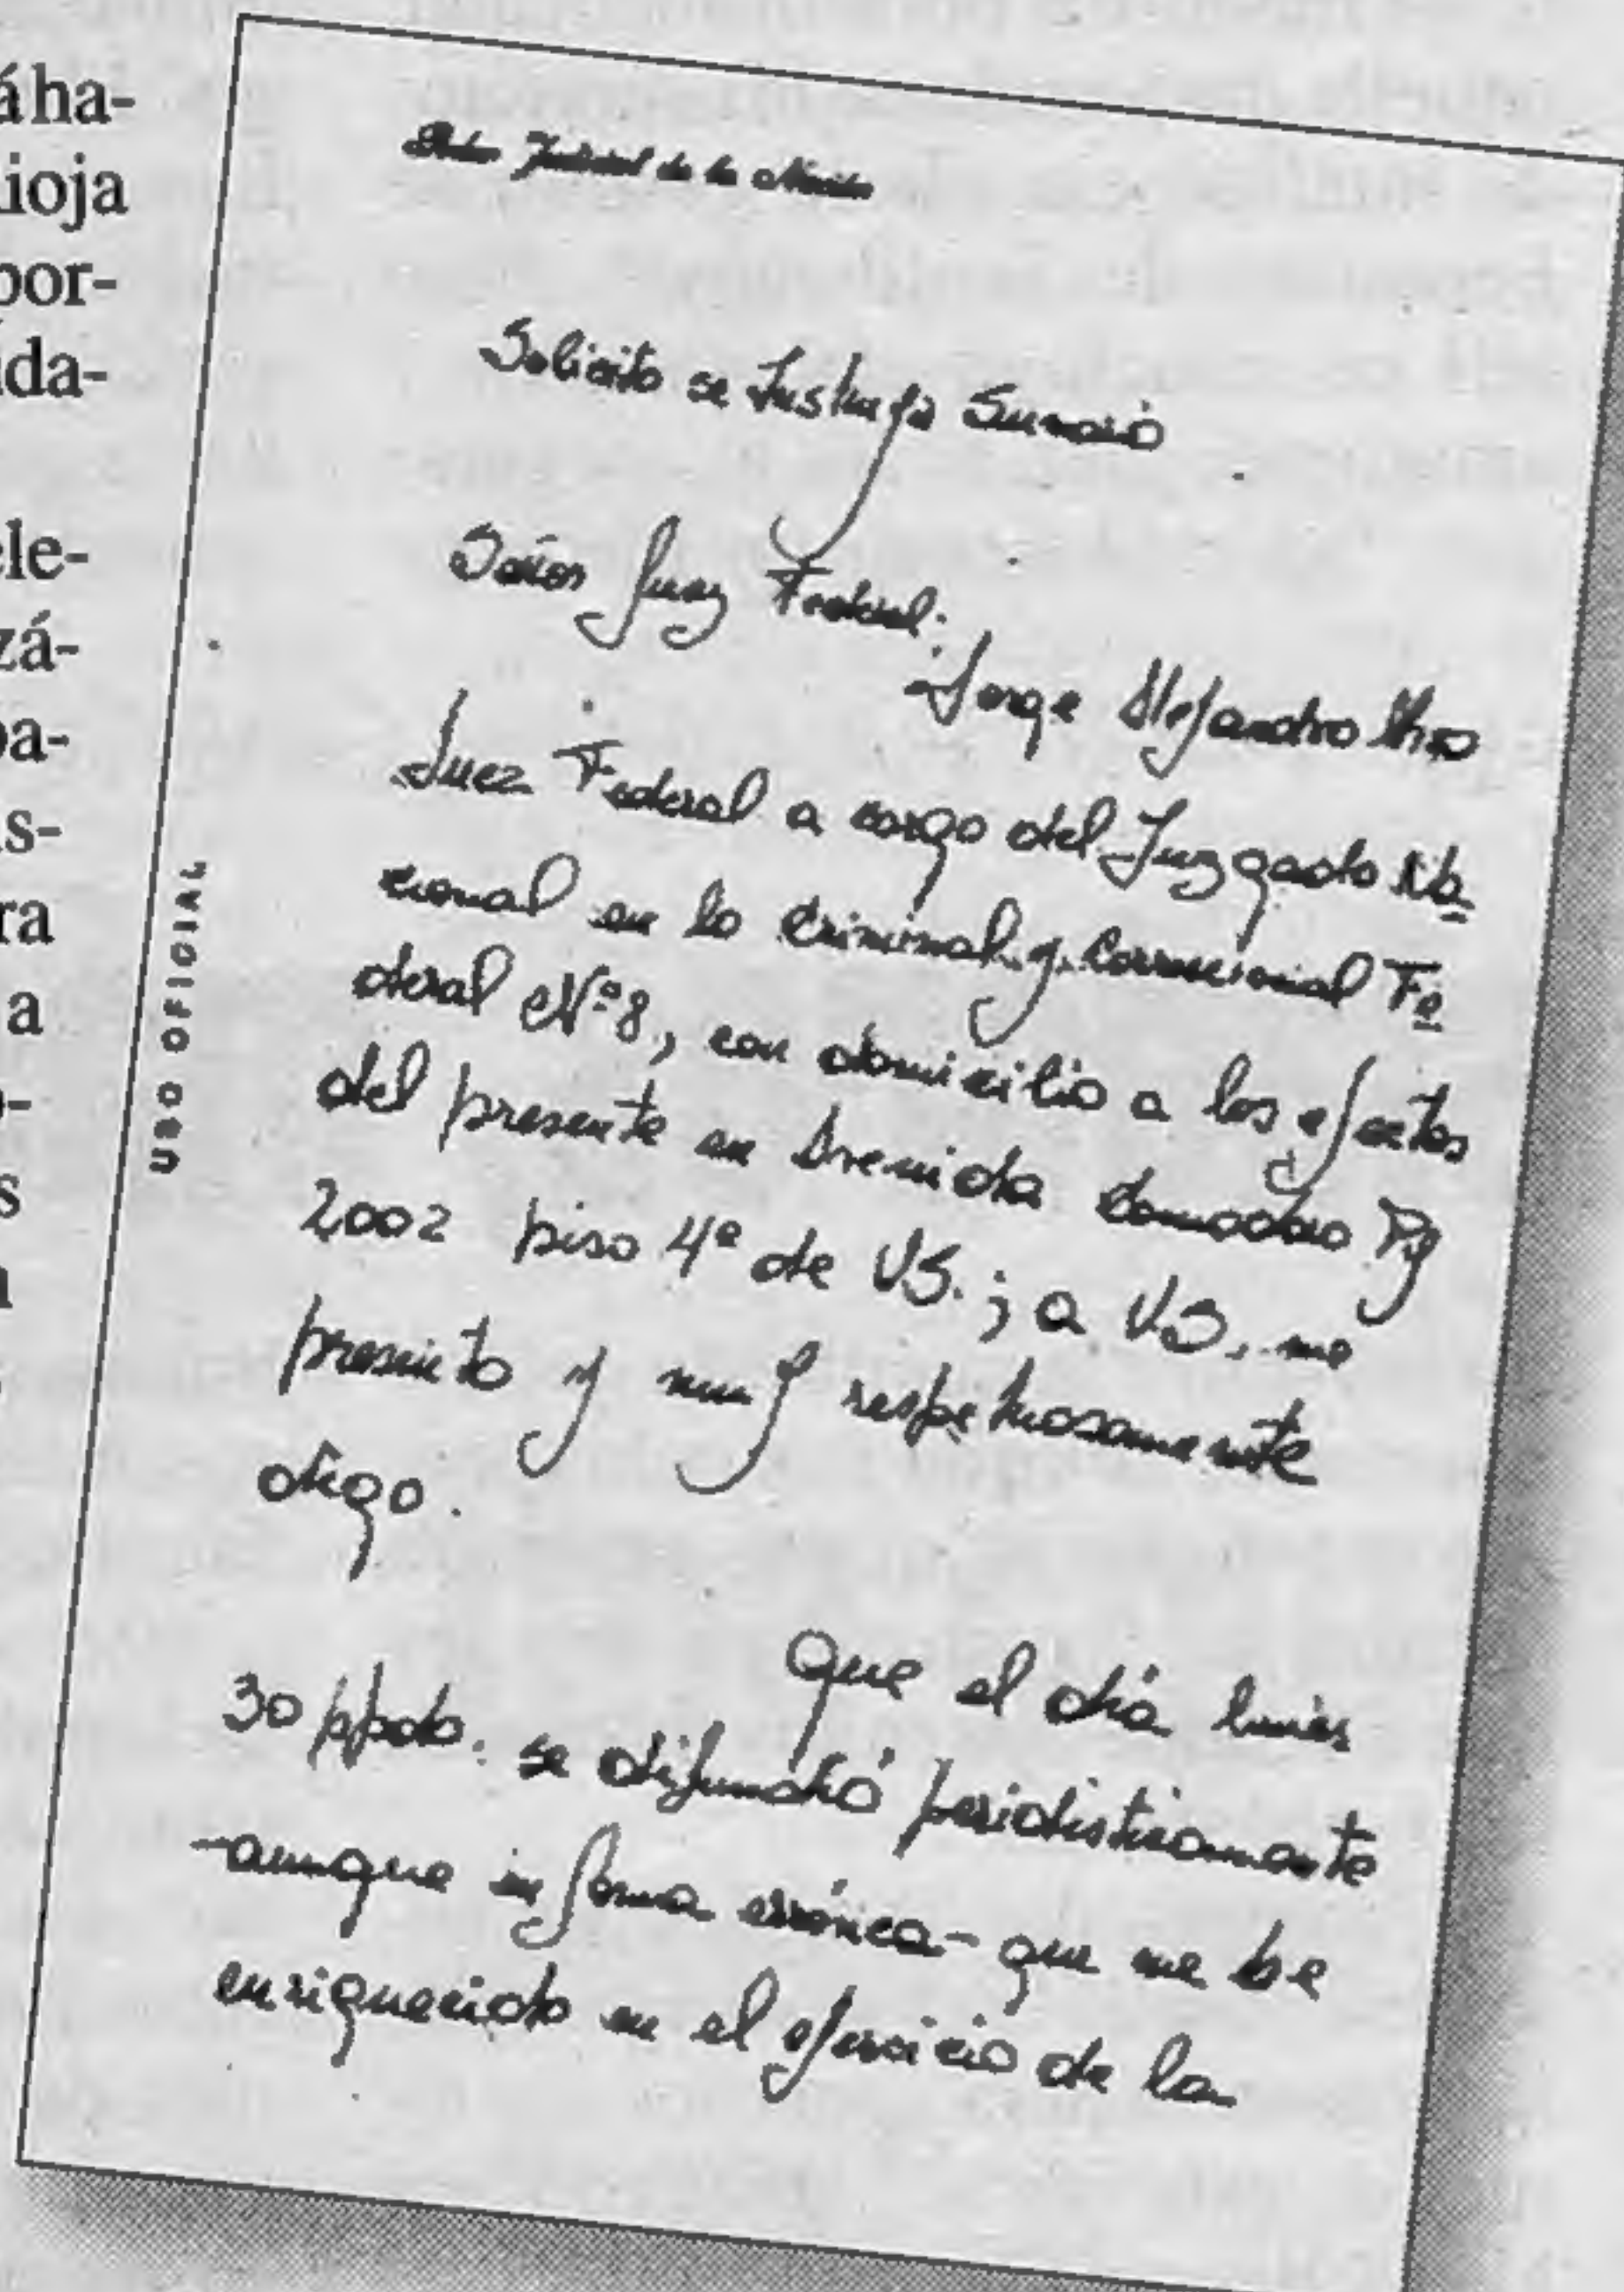 á ha-
ioja
por-
ida-
ele-
zá-
pa-
as-
ra
a
o-
s
Poder Judicial de la Nación
Solicito se Instruya Sumario
Señor Juez Federal:
Jorge Alejandro Urso
Juez Federal a cargo del Juzgado Na-
cional en lo Criminal y Correccional Fe
deral Nº 8, con domicilio a los efectos
del presente en Avenida Comodoro Py
2002 piso 4º de VS.; a VS. me
presento y muy respetuosamente
digo.
Que el día lunes
30 ppdo. se difundió peridisticamante
-aunque en forma errónea- que me he
enriquecido en el ejercicio de la
USO OFICIAL